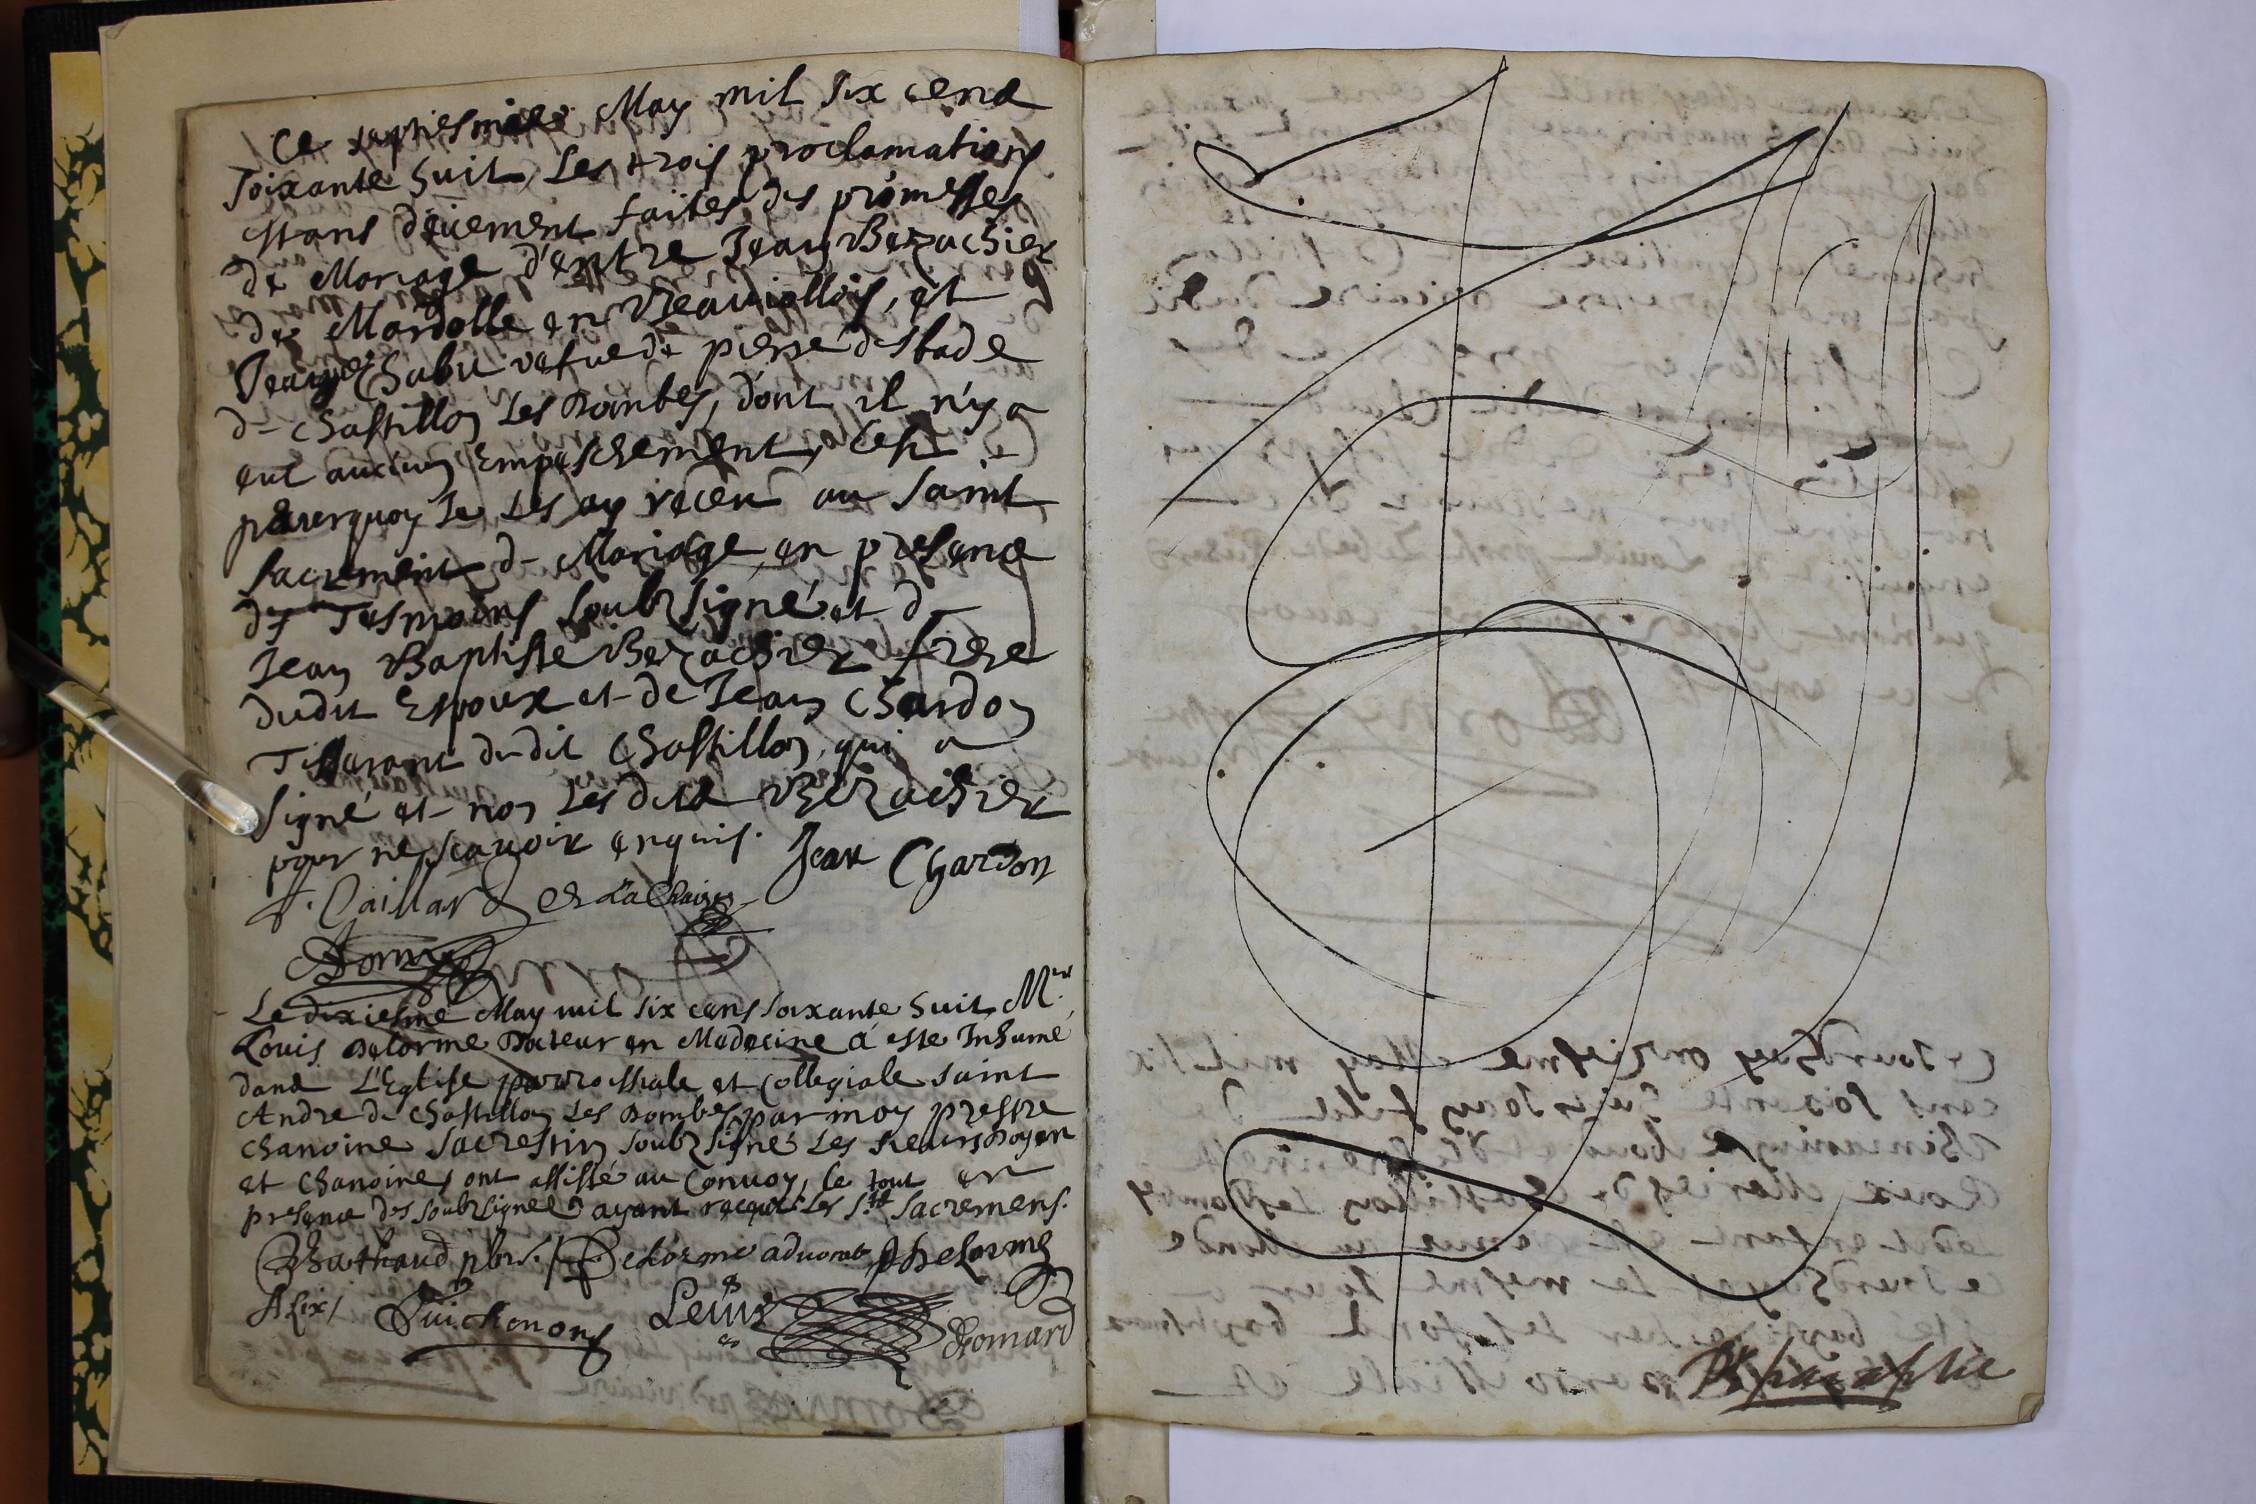 Ce septiesme May mil six cens
soixante huit, Les trois proclamations
estans deüement faites des promesses
de Mariage d'entre Jean Bezachier
de Mardolle en Beauiollois, et
Jeanne Chabu vefue de pierre desbade
de Chastillon Les Dombes, dont il n'y a
eut aucun Empeschement, c'est
pourquoy Je Les ay receu au saint
sacrement de Mariage, en presence
des Tesmoins soubzsigné et de
Jean Baptiste Bezachier frere
dudit Espoux et de Jean Chardon
Tisserant dudit Chastillon, qui a
signé et non Les dits Bezachier
pour ne scauoir enquis. Jean Chardon
Caillard De La Chaise
Le dixiesme May mil six cens soixante huit Mre
Louis Delorme Docteur en Medecine a este Inhumé
dans L'Eglise parrochiale et Collegiale saint
Andre de Chastillon Les Dombes par moy prestre
Chanoine Sacrestin soubzsigné Les sieurs Doyen
et Chanoines ont assisté au Conuoy, le tout en
presence des soubzsignes ayant receu Les Sts Sacremens.
Bathaud pbre. Delorme aduocat Delorme
Alix Guichenons Domard
Ne paraphe